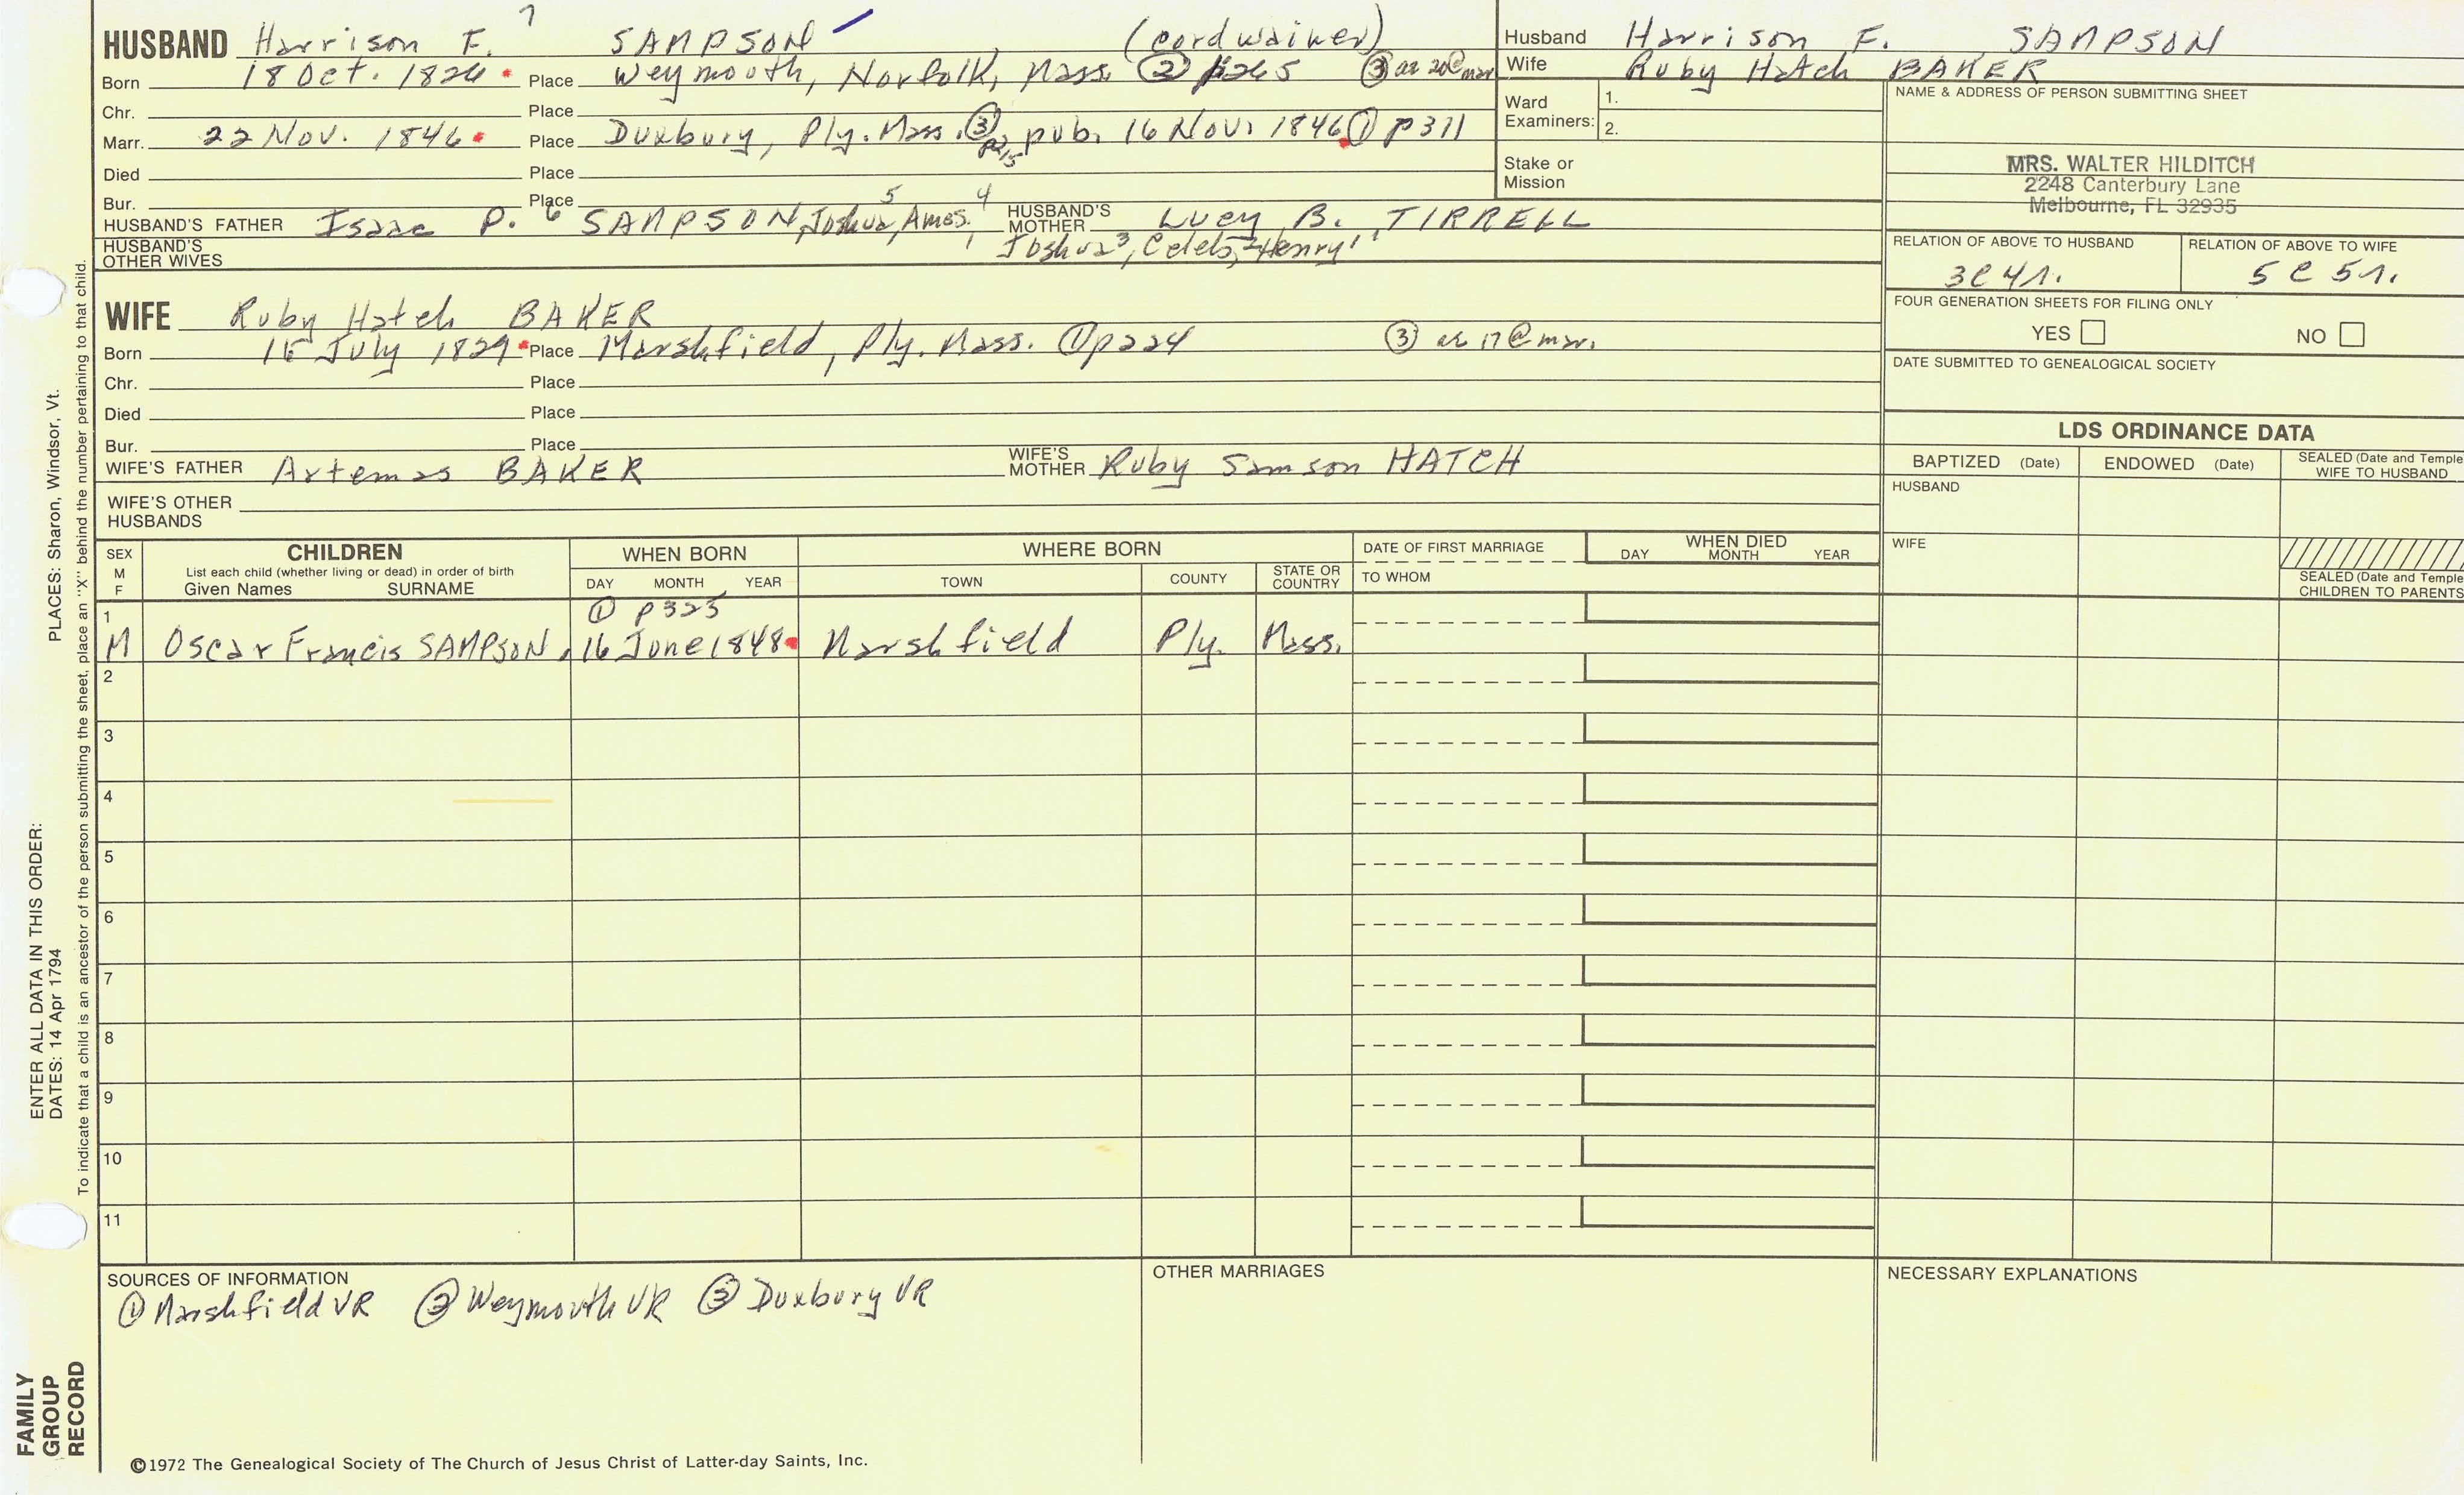 7
HUSBAND Harrison F. SAMPSON (cordwainer)
Born 18 Oct. 1826 Place Weymouth, Norfolk, Mass. ② p265 ③ ae 20 @ mar
Chr. Place
Marr. 22 Nov. 1846 Place Duxbury, Ply. Mass. ③ p215 pub. 16 Nov. 1846 ① p311
Died Place
Bur. Place
HUSBAND'S FATHER Isaac P. 6 SAMPSON, Joshua 5, Amos 4, HUSBAND'S MOTHER Lucy B. TIRRELL
HUSBAND'S OTHER WIVES Joshua 3, Celeb 2, Henry 1
Husband Harrison F. SAMPSON
Wife Ruby Hatch BAKER
Ward Examiners: 1.
2.
Stake or Mission
NAME & ADDRESS OF PERSON SUBMITTING SHEET
MRS. WALTER HILDITCH
2248 Canterbury Lane
Melbourne, FL 32935
RELATION OF ABOVE TO HUSBAND RELATION OF ABOVE TO WIFE
3C41. 5C51.
FOUR GENERATION SHEETS FOR FILING ONLY
YES NO
DATE SUBMITTED TO GENEALOGICAL SOCIETY
WIFE Ruby Hatch BAKER
Born July 1829 Place Marshfield, Ply. Mass. ① p224 ③ ae 17 @ mar.
Chr. Place
Died Place
Bur. Place
WIFE'S FATHER Artemas BAKER WIFE'S MOTHER Ruby Samson HATCH
WIFE'S OTHER HUSBANDS
LDS ORDINANCE DATA
BAPTIZED (Date) ENDOWED (Date) SEALED (Date and Temple) WIFE TO HUSBAND
HUSBAND
WIFE
SEALED (Date and Temple) CHILDREN TO PARENTS
SEX M F CHILDREN WHEN BORN WHERE BORN DATE OF FIRST MARRIAGE WHEN DIED
List each child (whether living or dead) in order of birth
Given Names SURNAME DAY MONTH YEAR TOWN COUNTY STATE OR COUNTRY TO WHOM DAY MONTH YEAR
1 ① p325
M Oscar Francis SAMPSON, 16 June 1848 Marshfield Ply. Mass.
2
3
4
5
6
7
8
9
10
11
SOURCES OF INFORMATION OTHER MARRIAGES NECESSARY EXPLANATIONS
① Marshfield VR ② Weymouth VR ③ Duxbury VR
©1972 The Genealogical Society of The Church of Jesus Christ of Latter-day Saints, Inc.
FAMILY GROUP RECORD
ENTER ALL DATA IN THIS ORDER:
DATES: 14 Apr 1794
PLACES: Sharon, Windsor, Vt.
To indicate that a child is an ancestor of the person submitting the sheet, place an "X" behind the number pertaining to that child.